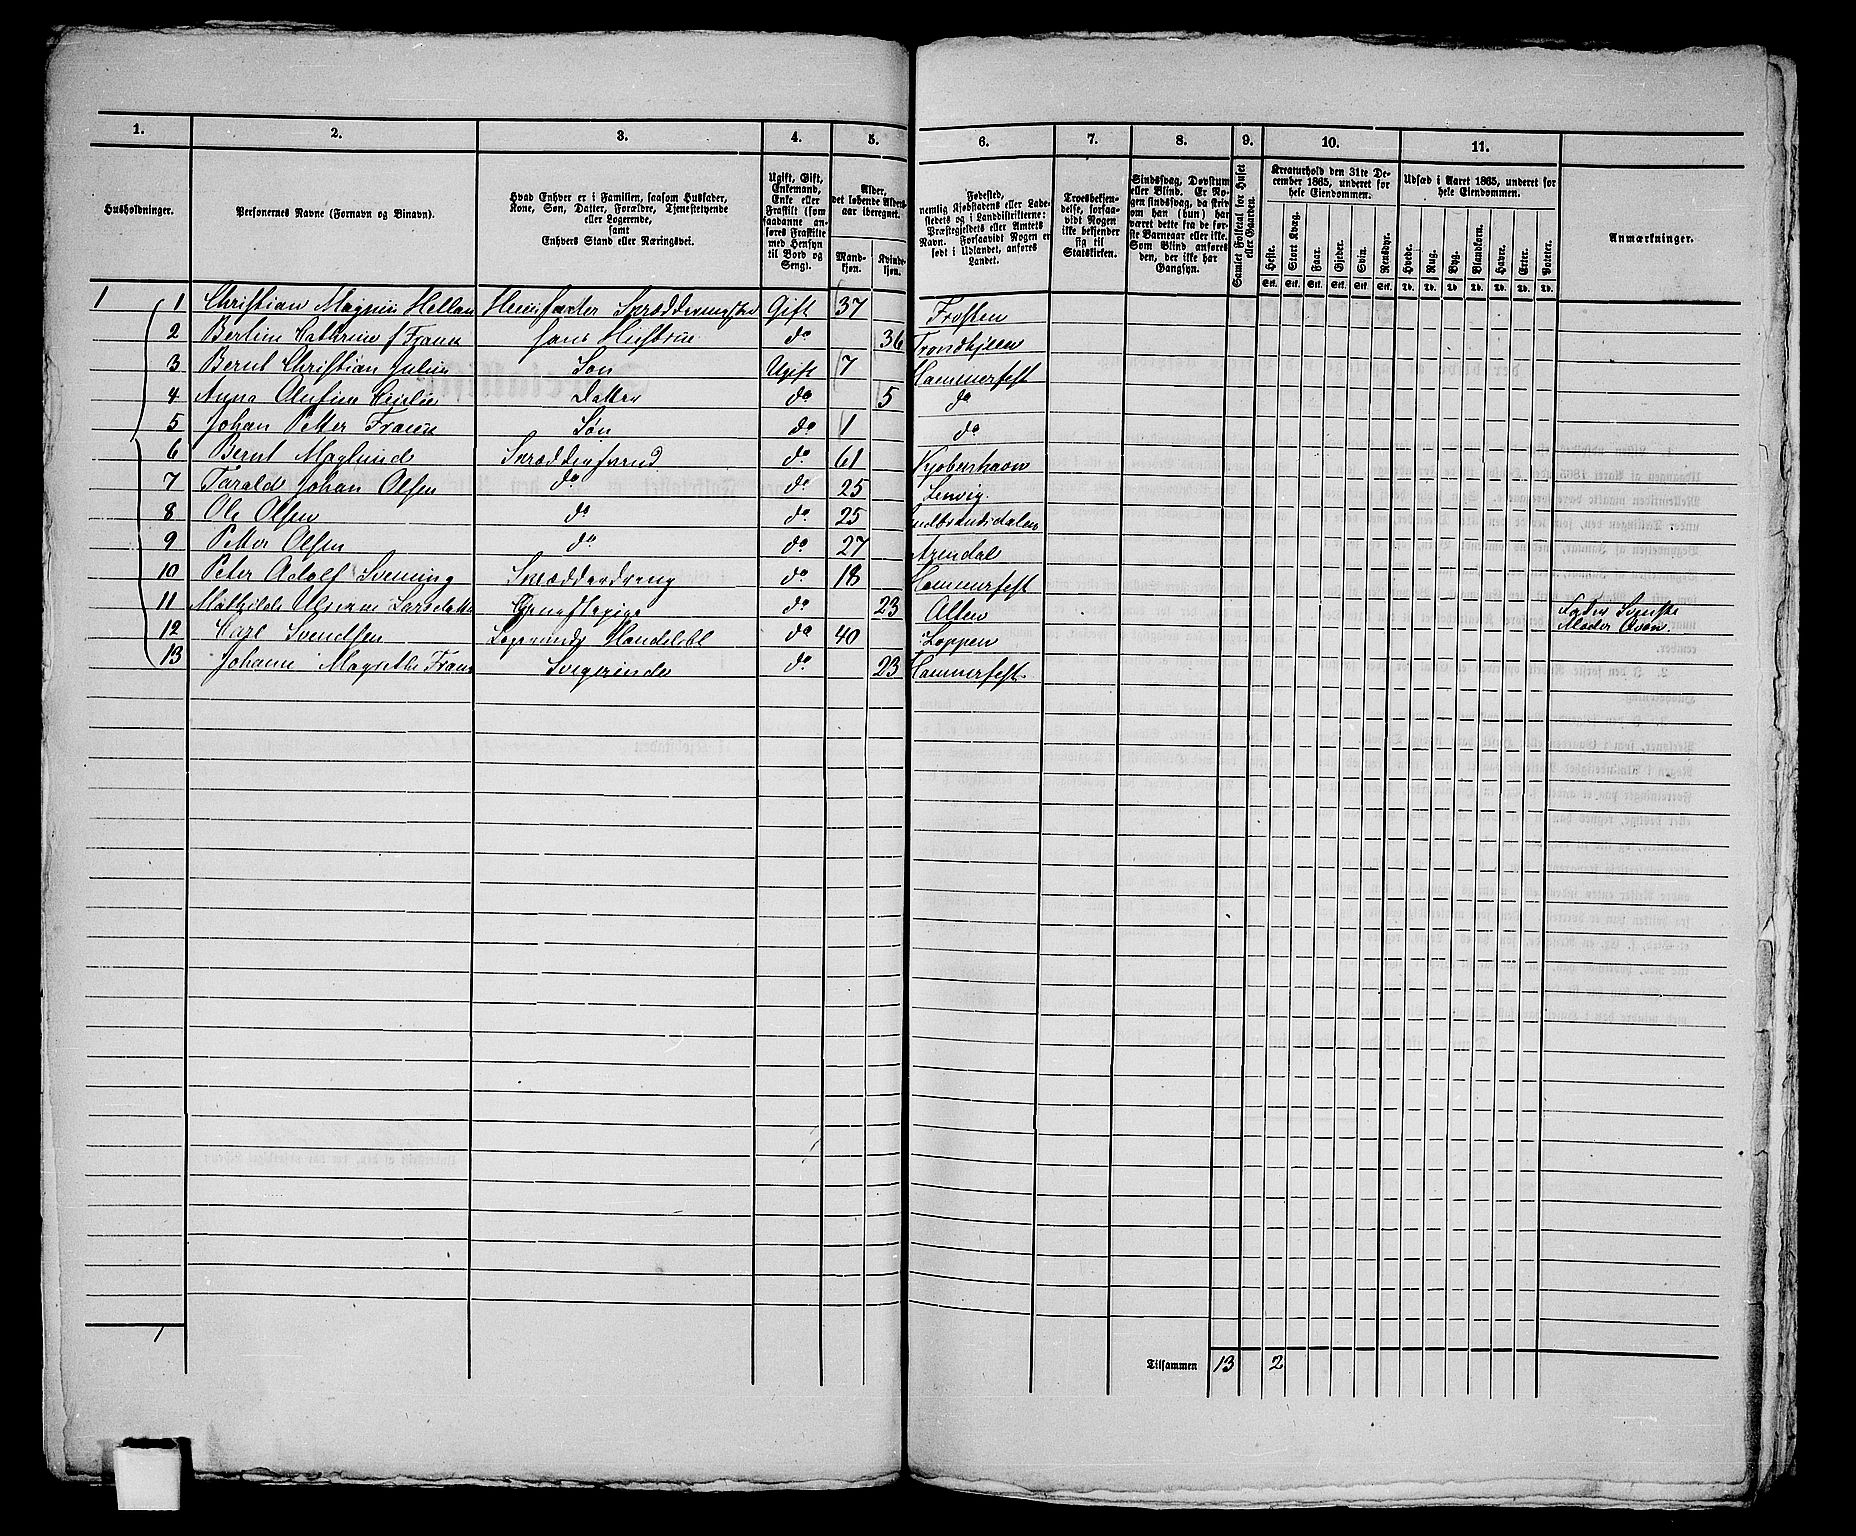 1. 2. 3. 4. 5. 6. 7. 8. 9. 10. 11.
Husholdninger.
Personernes Navne (Fornavn og Binavn).
Hvad Enhver er i Familien, saasom Husfader,
Kone, Søn, Datter, Forældre, Tjenestetyende
eller Logerende,
samt
Enhvers Stand eller Næringsvei.
Ugift, Gift,
Enkemand,
Enke eller
Fraskilt (som
saadanne an-
føres Fraskilte
med Hensyn
til Bord og
Seng).
Alder,
det løbende Alders-
aar iberegnet.
Mand-
kjøn.
Kvinde-
kjøn.
Fødested,
nemlig Kjøbstadens eller Lade-
stedets og i Landdistrikterne:
Præstegjeldets eller Amtets
Navn. Forsaavidt Nogen er
født i Udlandet, anføres
Landet.
Troesbekjen-
delse, forsaa-
vidt Nogen
ikke bekjender
sig til
Statskirken.
Sindssvag, Døvstum
eller Blind. Er No-
gen sindssvag, da skriv
om han (hun) har
været dette fra de før-
ste Barneaar eller ikke.
Som Blind anføres
den, der ikke har
Gangsyn.
Samlet Folketal for Huset
eller Gaarden.
Kreaturhold den 31te De-
cember 1865, underet for
hele Eiendommen.
Heste. Stort Kvæg. Faar. Gjeder. Svin. Rensdyr.
Stk. Stk. Stk. Stk. Stk. Stk.
Udsæd i Aaret 1865, underet for
hele Eiendommen.
Hvede. Rug. Byg. Blandkorn. Havre. Erter. Poteter.
Td. Td. Td. Td. Td. Td. Td.
Anmærkninger.
1 1 Christian Magnus Hellan Huusfader Skræddermester Gift 37 Frosten
2 Bertine Cathrine f Franck hans Hustrue do 36 Trondhjem
3 Bernt Christian Julius Søn Ugift 7 Hammerfest
4 Anna Olufine Cecilie Datter do 5 do
5 Johan Petter Franck Søn do 1 do
6 Bernt Maglund Skræddersvend do 61 Kjøbenhavn
7 Tarald Johan Olsen do do 25 Lenvig
8 Ole Olsen do do 25 Gudbrandsdalen
9 Petter Olsen do do 27 Arendal
10 Peter Adolf Svenning Skrædderdreng do 18 Hammerfest
11 Mathilde Larsdatter do 23 Alten Fader Svenske
Moder Qvæn.
12 Carl Svendsen Handelsbt do 40 Loppen
13 Johanne Magrethe Franck Svigerinde do 23 Hammerfest
1
Tilsammen 13 2